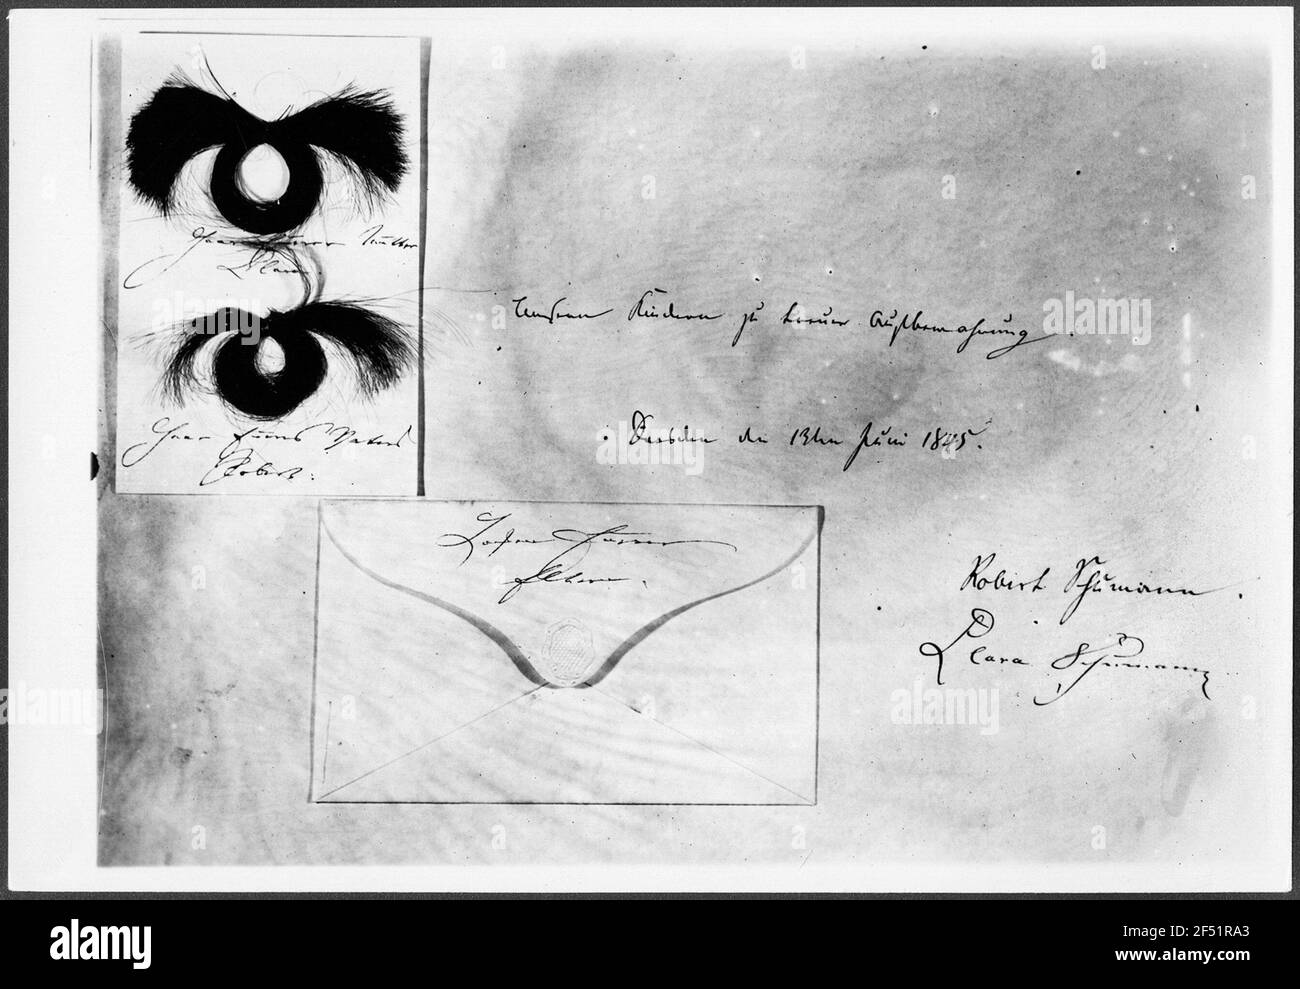 Haar Eurer Mutter
Clara
Haar Eures Vaters
Robert.
Unseren Kindern zu treuer Aufbewahrung.
Dresden den 13ten Juni 1845.
Locken Eurer
Eltern.
Robert Schumann.
Clara Schumann
a
alamy
alamy
Image ID: 2F51RA3
www.alamy.com